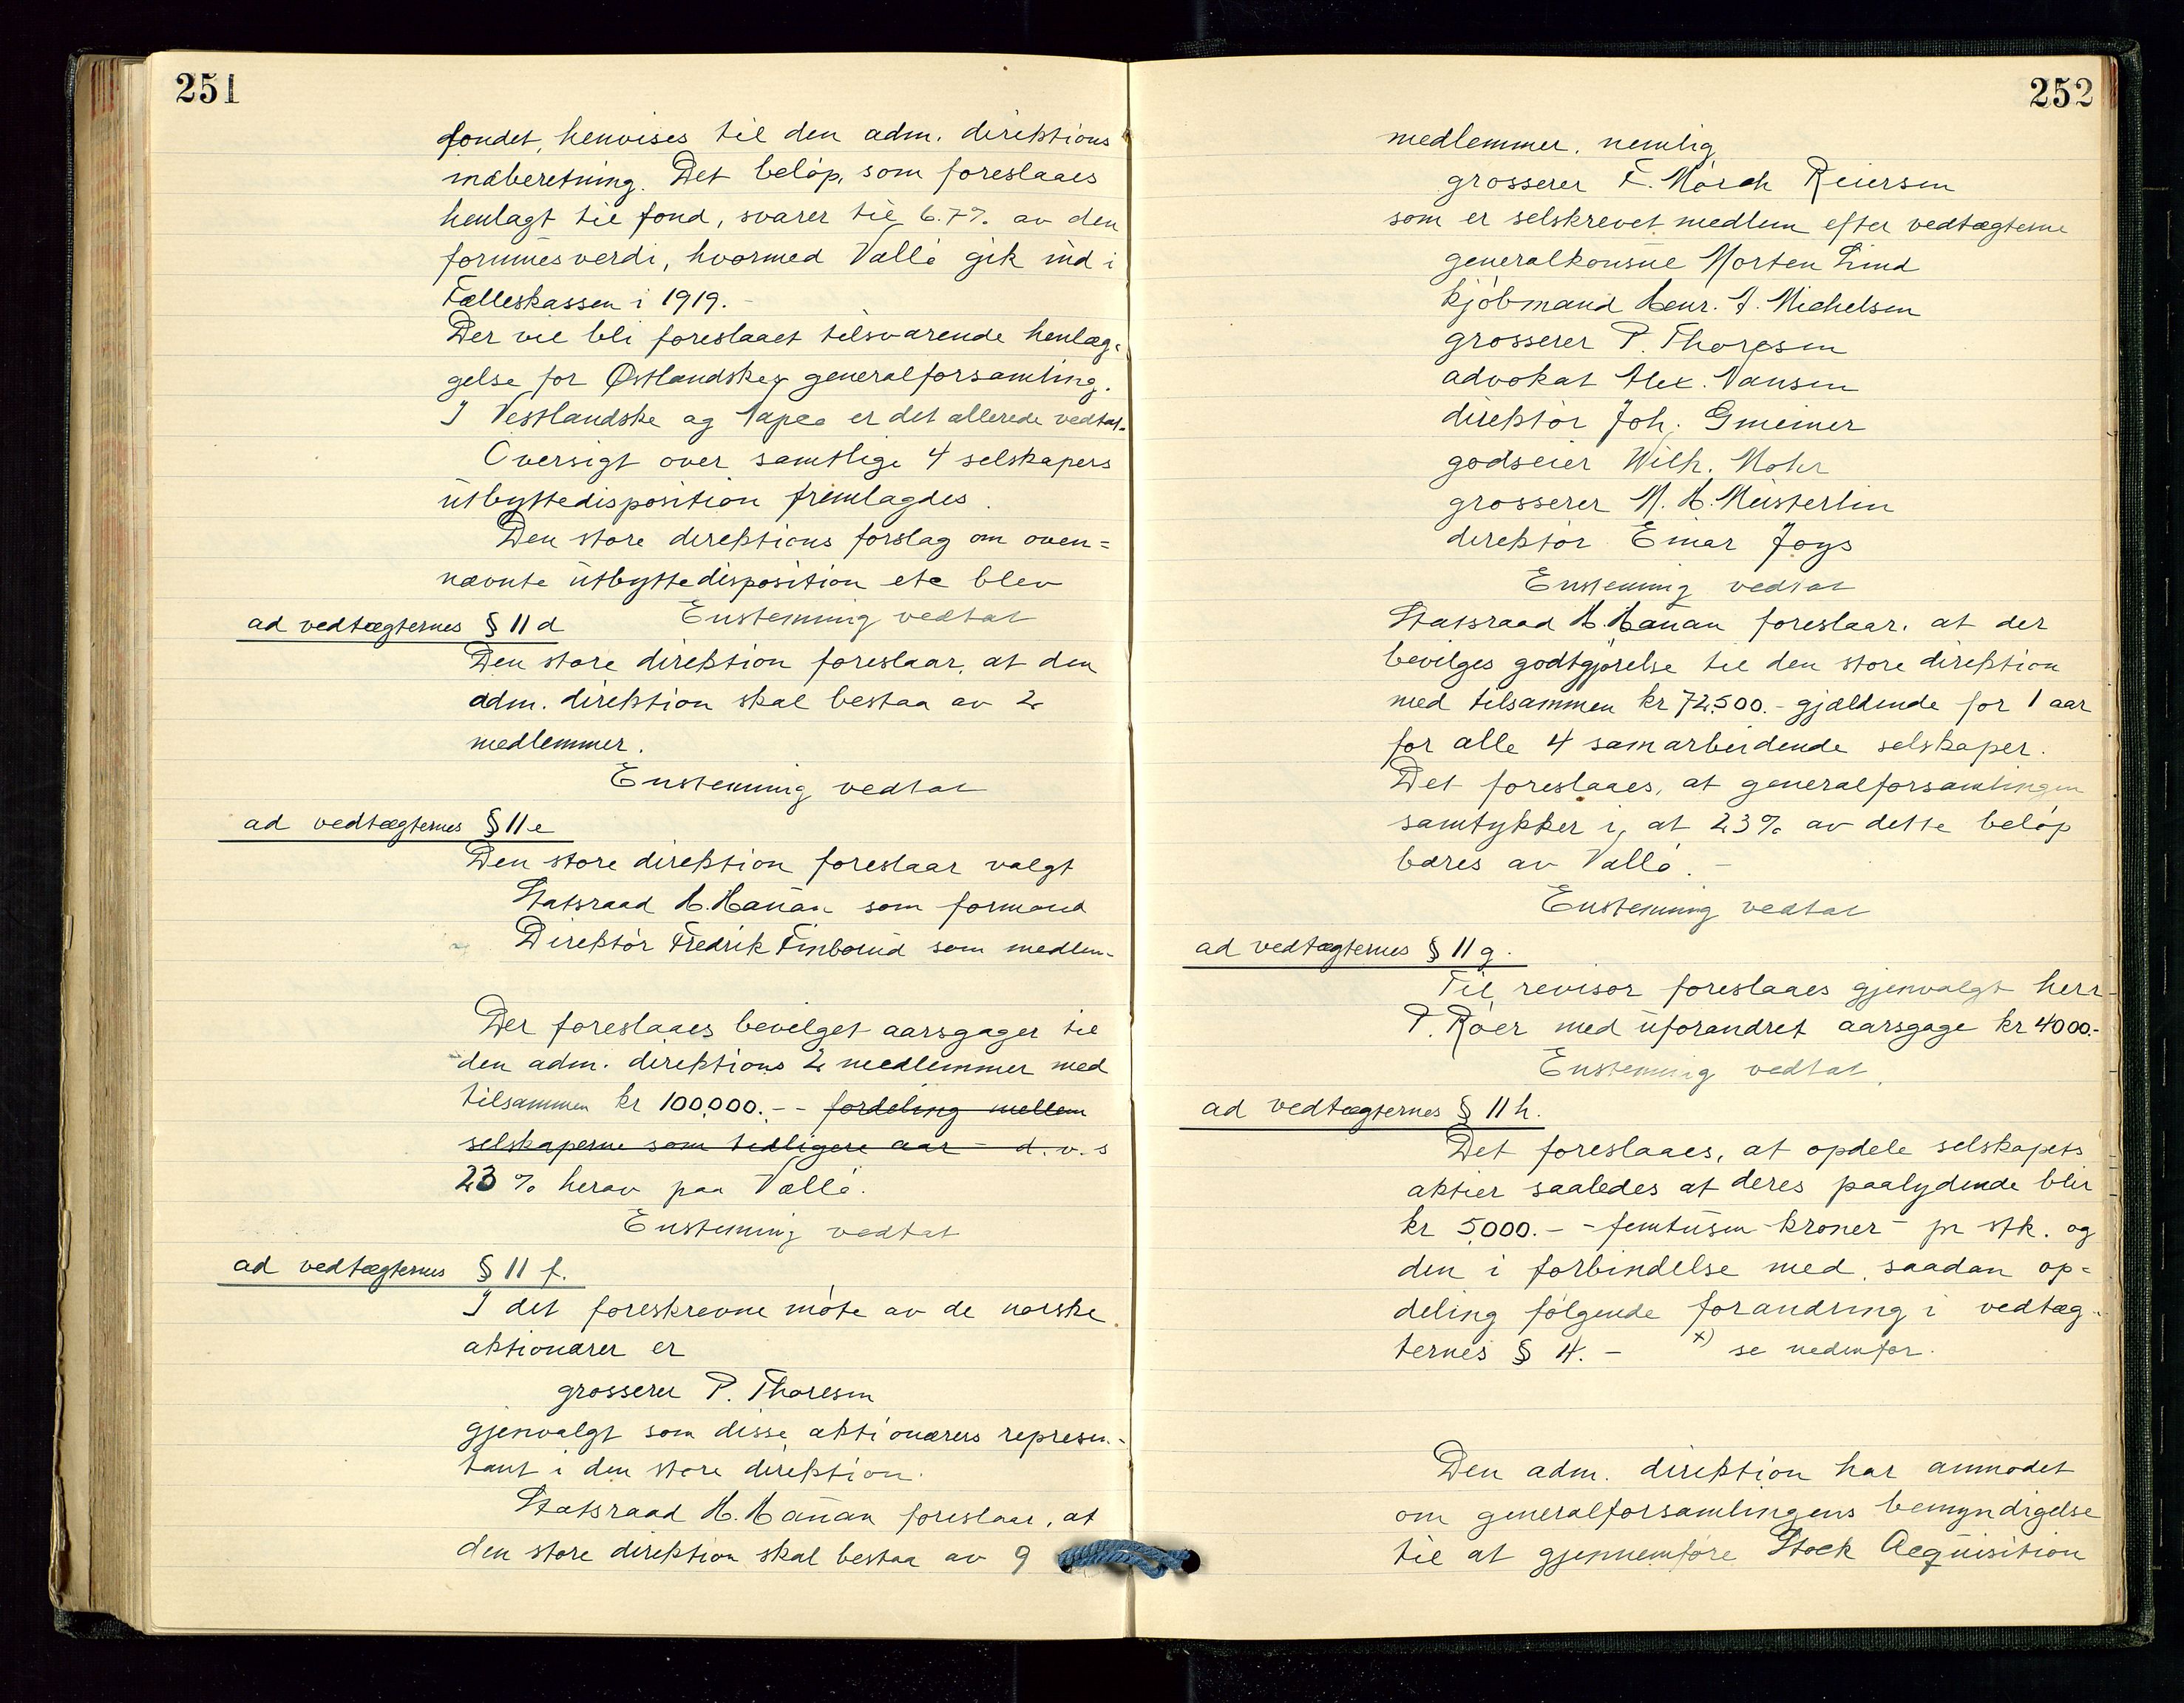 251
fondet, henvises til den adm. direktions
indberetning. Det beløp, som foreslaaes
henlagt til fond, svarer til 6.7% av den
formuesverdi, hvormed Vallø gik ind i
Fælleskassen i 1919. -
Der vil bli foreslaaet tilsvarende henlæg-
gelse for Østlandskes generalforsamling.
I Vestlandske og Vapco er det allerede vedtat.
Oversigt over samtlige 4 selskapers
utbyttedisposition fremlagdes.
Den store direktions forslag om oven=
nævnte utbyttedisposition etc blev
Enstemmig vedtat
ad vedtægternes § 11 d
Den store direktion foreslaar, at den
adm. direktion skal bestaa av 2
medlemmer.
Enstemmig vedtat
ad vedtægternes § 11 e
Den store direktion foreslaar valgt
Statsraad H. Hauan som formand
Direktør Fredrik Finborud som medlem.
Der foreslaaes bevilget aarsgager til
den adm. direktions 2 medlemmer med
tilsammen kr 100.000.- - fordeling mellem
selskaperne som tidligere aar - d.v.s
23% herav paa Vallø.
Enstemmig vedtat
ad vedtægternes § 11 f.
I det foreskrevne møte av de norske
aktionærer er
grosserer P. Thoresen
gjenvalgt som disse aktionærers represen-
tant i den store direktion.
Statsraad H. Hauan foreslaar, at
den store direktion skal bestaa av 9
252
medlemmer, nemlig
grosserer F. Mørch Reiersen
som er selskrevet medlem efter vedtægterne
generalkonsul Morten Lind
kjøbmand Henr. J. Michelsen
grosserer P. Thoresen
advokat Alex. Nansen
direktør Joh. Gmeiner
godseier Wilh. Mohr
grosserer M. H. Müsterlin
direktør Einar Joys
Enstemmig vedtat
Statsraad H. Hauan foreslaar, at der
bevilges godtgjørelse til den store direktion
med tilsammen kr 72.500.- gjældende for 1 aar
for alle 4 samarbeidende selskaper.
Det foreslaaes, at generalforsamlingen
samtykker i, at 23% av dette beløp
bæres av Vallø. -
Enstemmig vedtat
ad vedtægternes § 11 g.
Til revisor foreslaaes gjenvalgt herr
P. Røer med uforandret aarsgage kr 4000.-
Enstemmig vedtat.
ad vedtægternes § 11 h.
Det foreslaaes, at opdele selskapets
aktier saaledes at deres paalydende blir
kr 5.000.- - femtusen kroner - pr stk. og
den i forbindelse med saadan op=
deling følgende forandring i vedtæg-
ternes § 4. - x) se nedenfor.
Den adm. direktion har anmodet
om generalforsamlingens bemyndigelse
til at gjennemføre Stock Acquisition